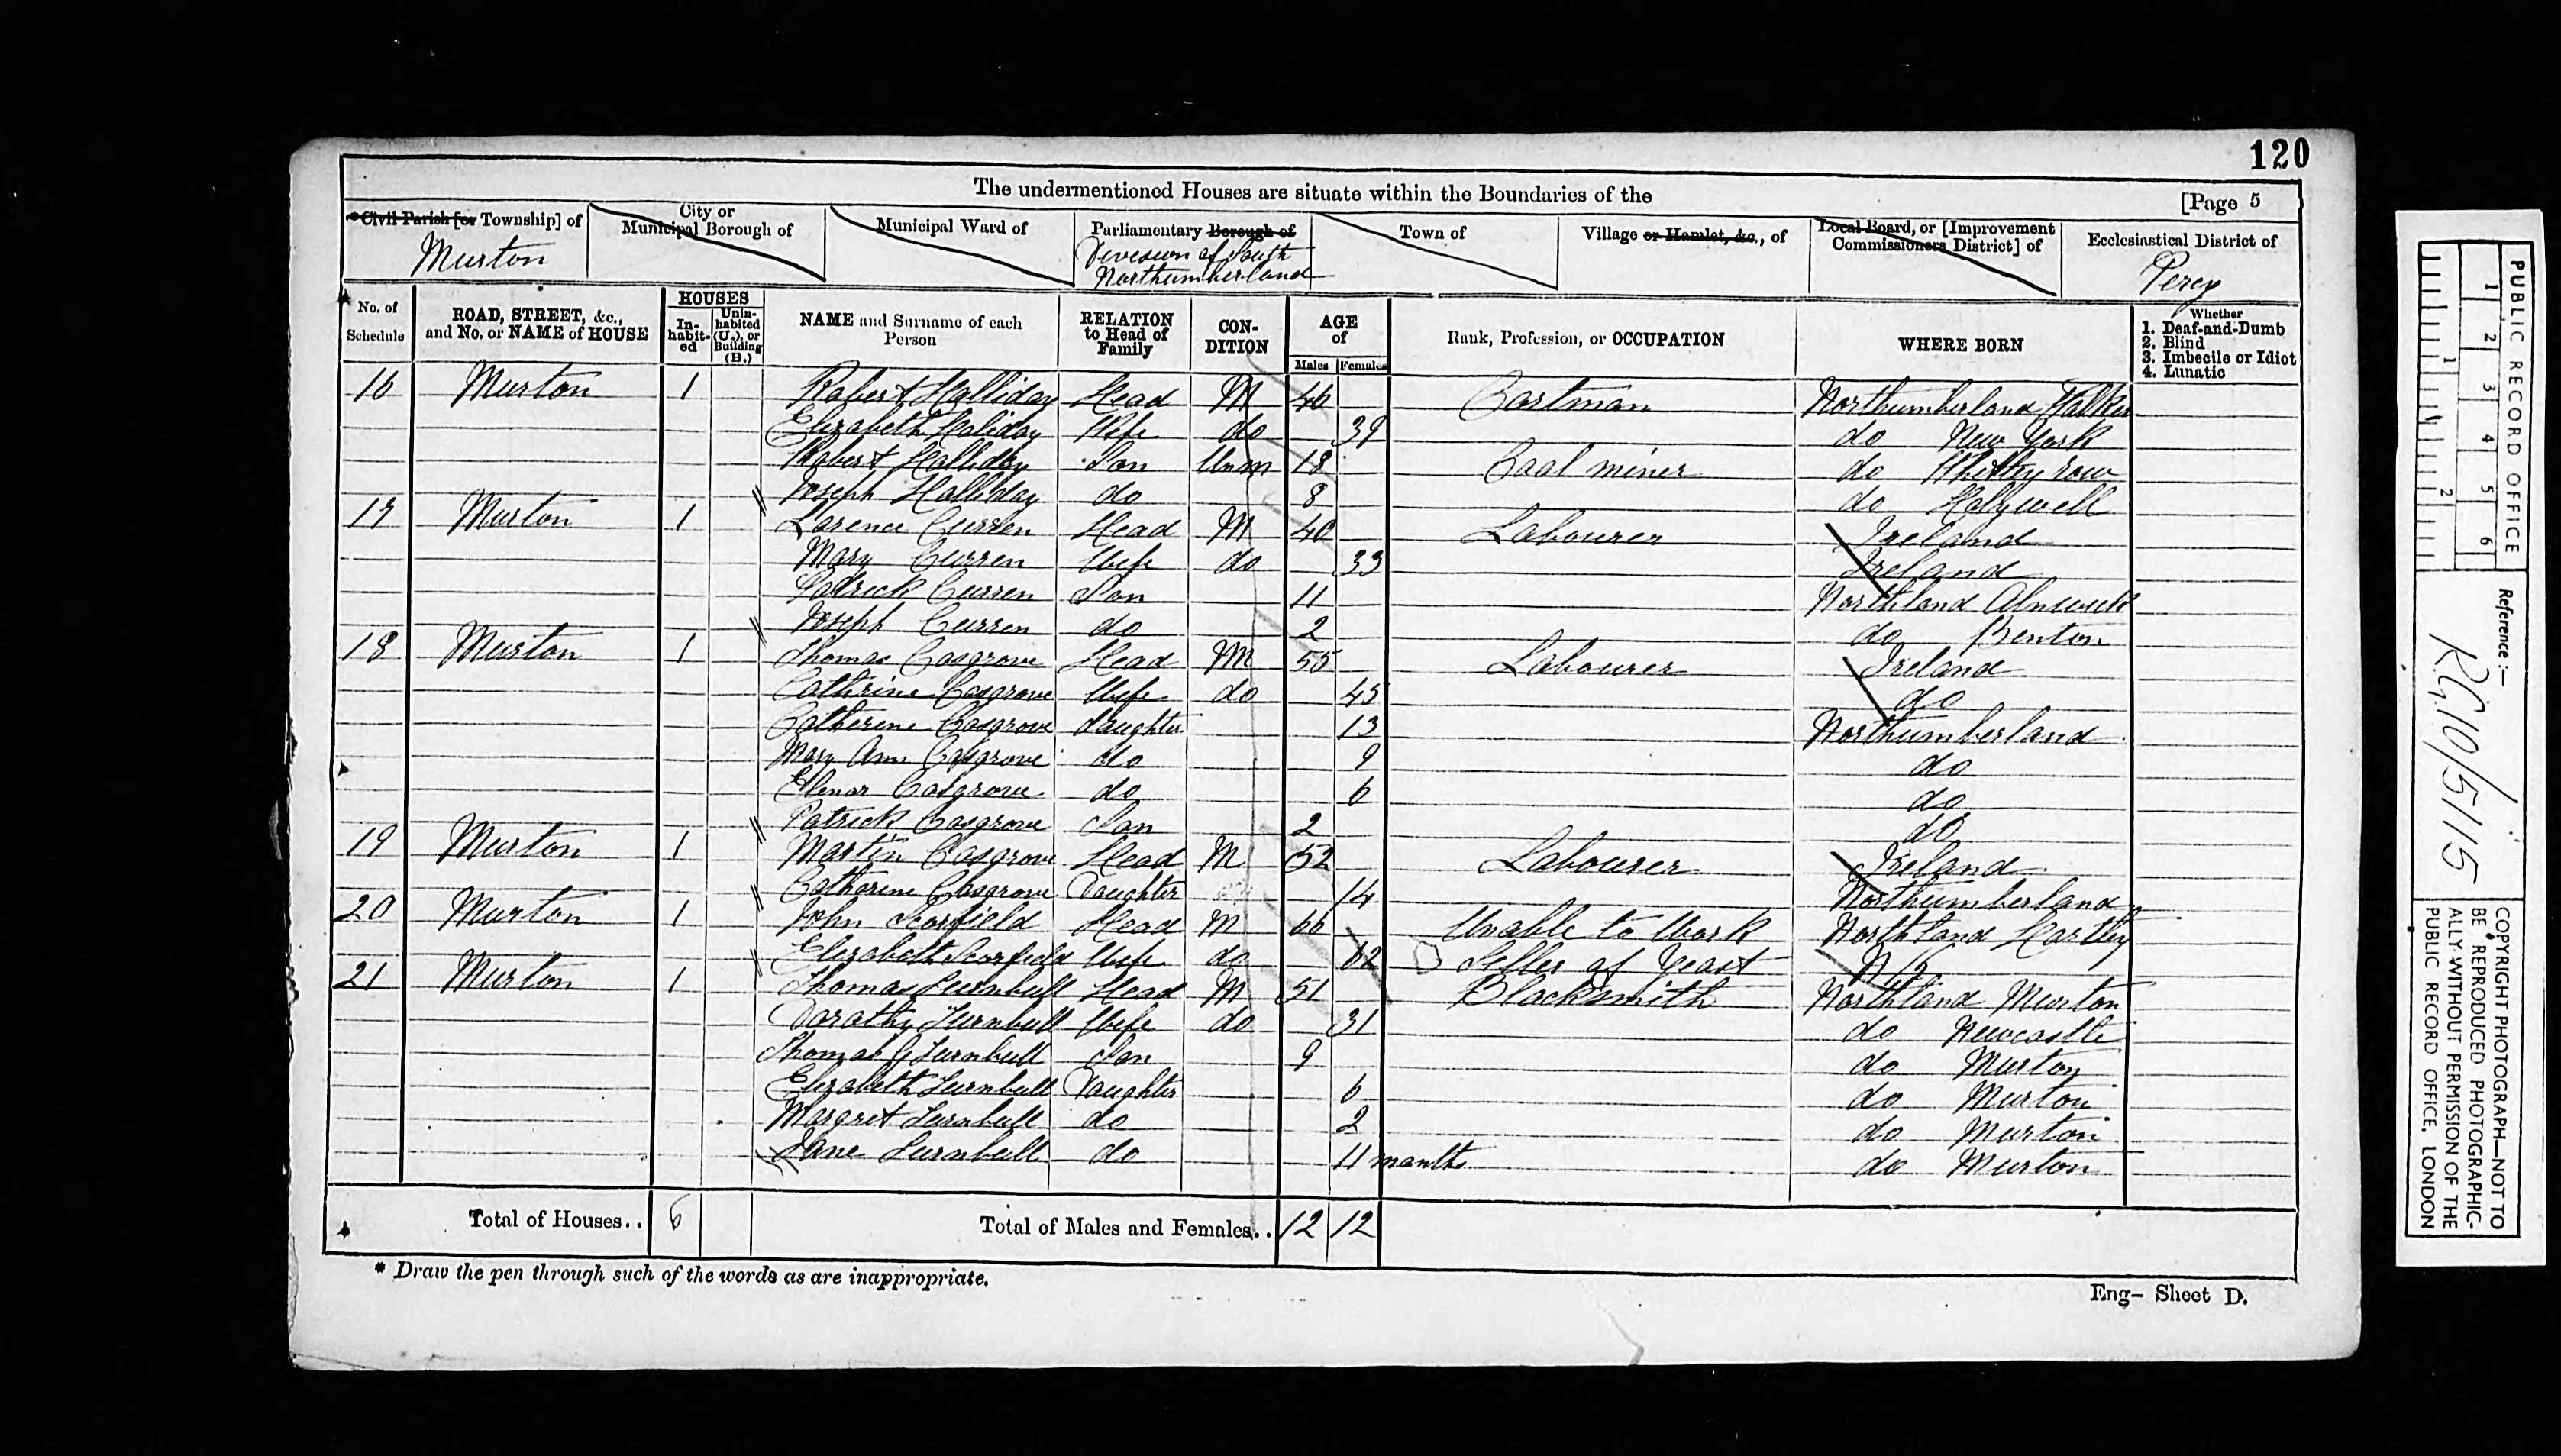 120
The undermentioned Houses are situate within the Boundaries of the [Page 5
*Civil Parish [or Township] of
City or Municipal Borough of
Municipal Ward of
Parliamentary Borough of
Town of
Village or Hamlet, &c., of
Local Board, or [Improvement Commissioners District] of
Ecclesiastical District of
Murton
Division of South
Northumberland
Percy
No. of Schedule
ROAD, STREET, &c., and No. or NAME of HOUSE
HOUSES
In-habit-ed
Unin-habited (U.), or Building (B.)
NAME and Surname of each Person
RELATION to Head of Family
CON-DITION
AGE of
Males Females
Rank, Profession, or OCCUPATION
WHERE BORN
Whether
1. Deaf-and-Dumb
2. Blind
3. Imbecile or Idiot
4. Lunatic
16 Murton 1 Robert Halliday Head M 46 Cartman Northumberland Walker
Elizabeth Haliday Wife do 39 do New York
Robert Halliday Son Unm 18 Coal miner do row
Joseph Halliday do 8 do Holywell
17 Murton 1 Larence Curren Head M 40 Labourer Ireland
Mary Curren Wife do 33 Ireland
Patrick Curren Son 11 Northland Alnwick
Joseph Curren do 2 do Benton
18 Murton 1 Thomas Casgrove Head M 55 Labourer Ireland
Cathrine Casgrove Wife do 45 do
Catherine Casgrove daughter 13 Northumberland
Mary Ann Casgrove do 9 do
Elenor Casgrove do 6 do
Patrick Casgrove Son 2 do
19 Murton 1 Martin Casgrove Head M 52 Labourer Ireland
Catharine Casgrove Daughter 14 Northumberland
20 Murton 1 John Scorfield Head M 66 Unable to Work Northland Hartley
Elizabeth Scorfield Wife do 62 Seller of Yeast
21 Murton 1 Thomas Turnbull Head M 51 Blacksmith Northland Murton
Dorathy Turnbull Wife do 31 do Newcastle
Thomas G Turnbull Son 9 do Murton
Elizabeth Turnbull Daughter 6 do Murton
Margret Turnbull do 2 do Murton
Jane Turnbull do 11 months do Murton
Total of Houses.. 6 Total of Males and Females.. 12 12
* Draw the pen through such of the words as are inappropriate.
Eng- Sheet D.
PUBLIC RECORD OFFICE
1 2 3 4 5 6
1 2
Reference :-
RG 10/5115
COPYRIGHT PHOTOGRAPH—NOT TO
BE REPRODUCED PHOTOGRAPHIC-
ALLY WITHOUT PERMISSION OF THE
PUBLIC RECORD OFFICE, LONDON